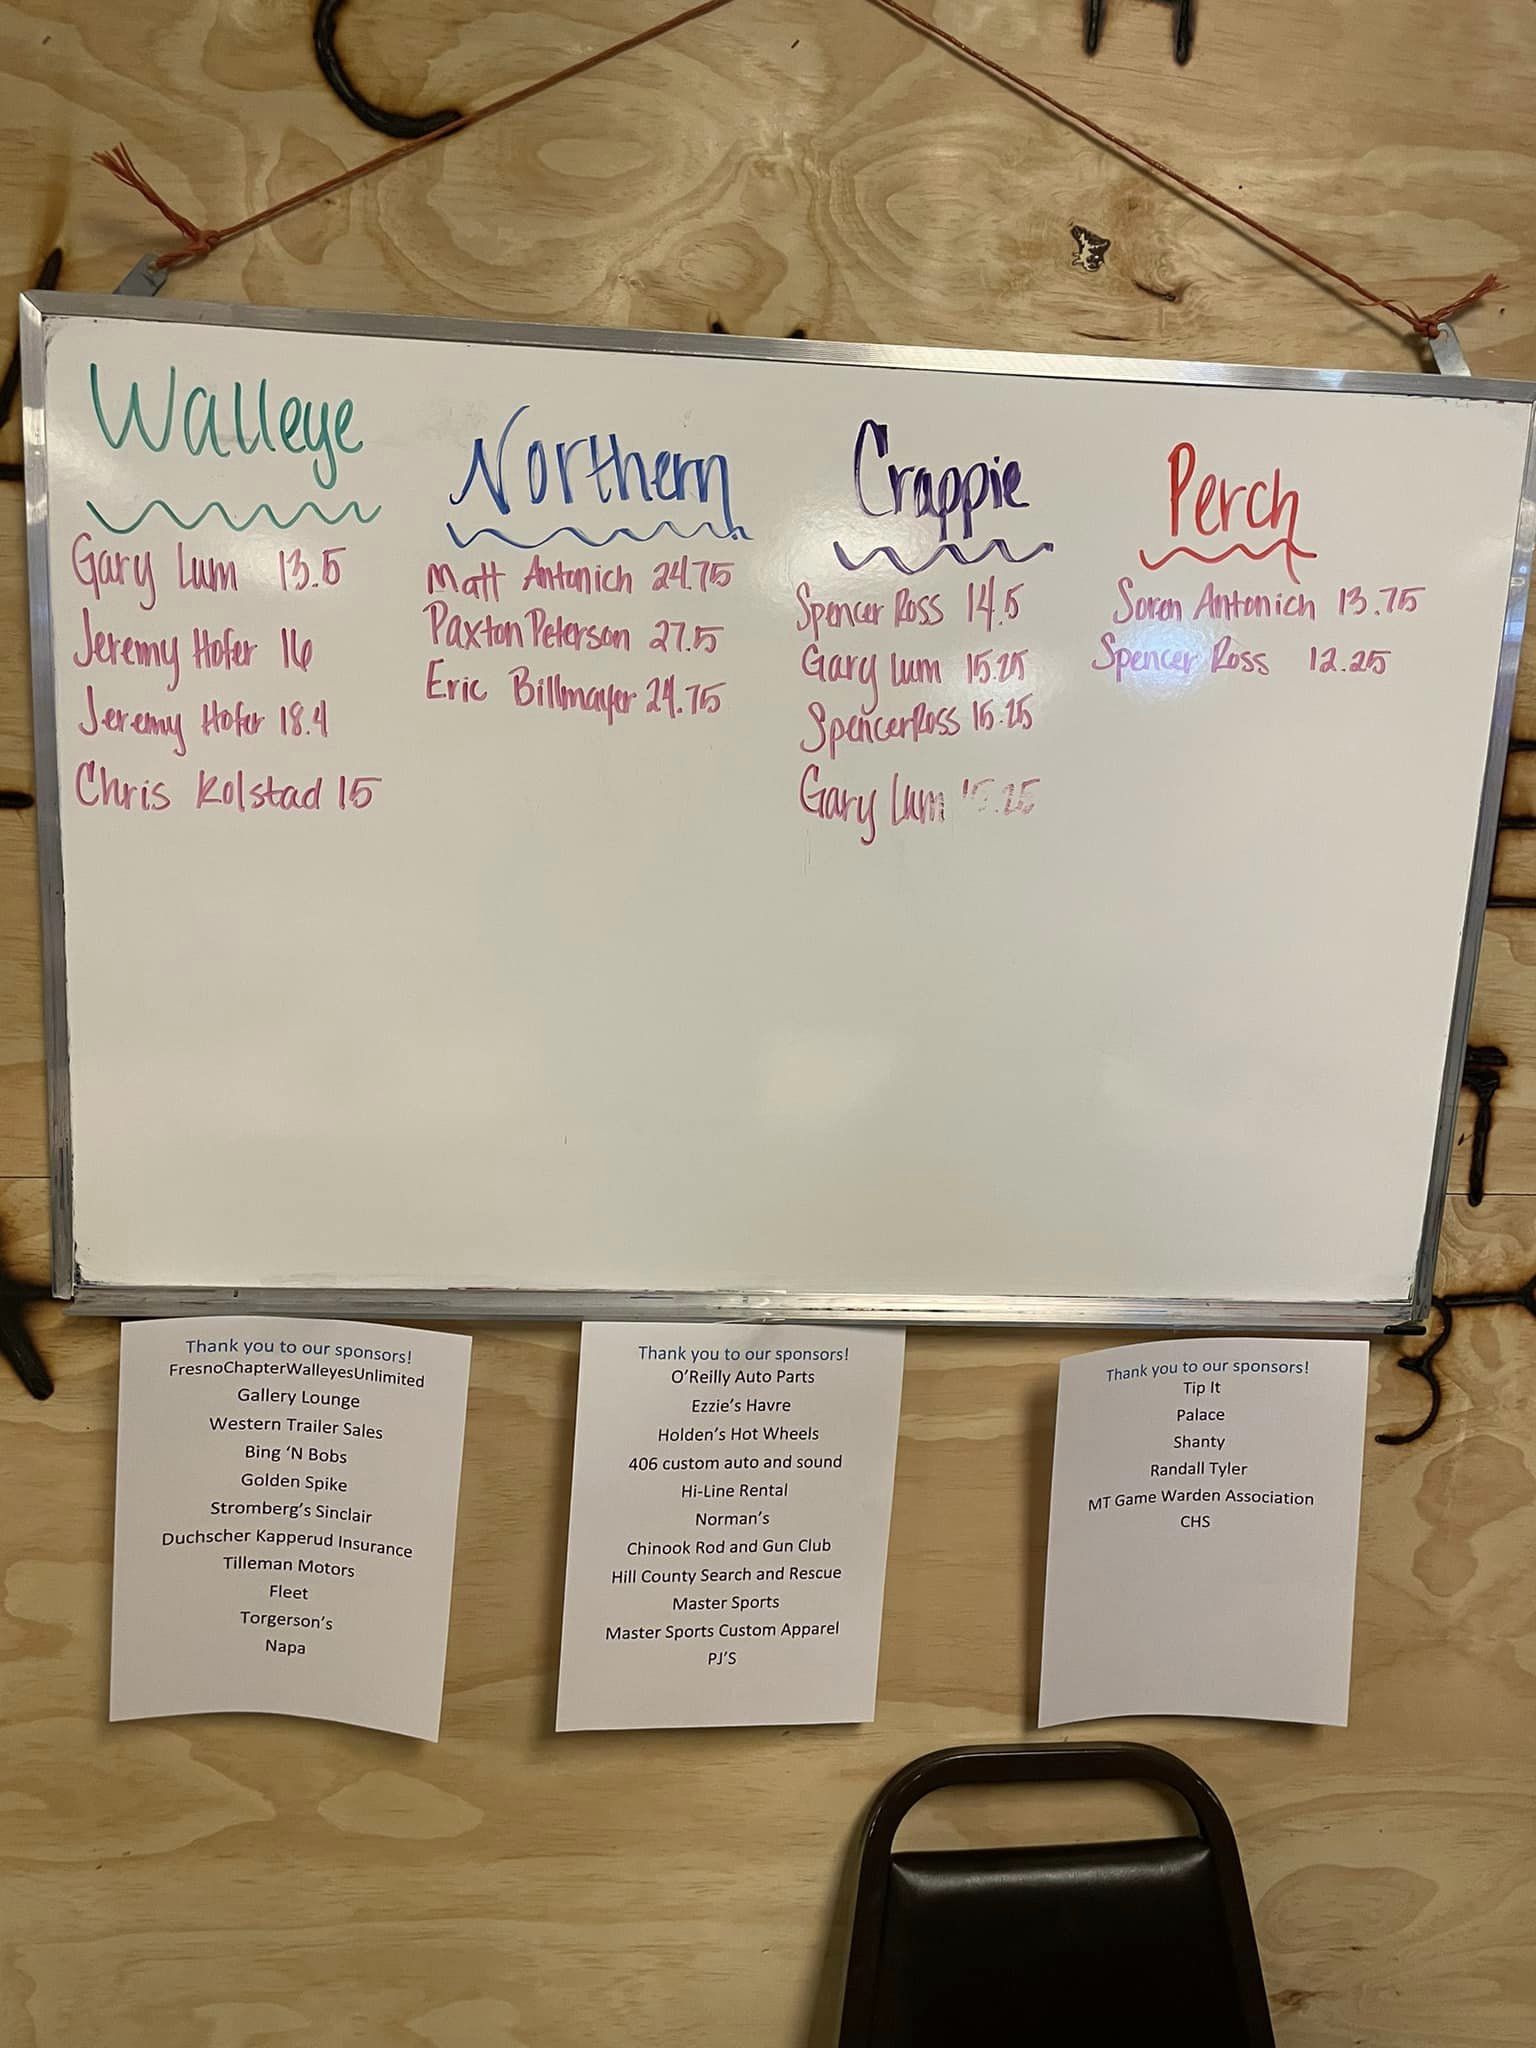 Walleye
Gary Lum 13.5
Jeremy Hofer 16
Jeremy Hofer 18.4
Chris Kolstad 15
Northern
Matt Antonich 24.75
Paxton Peterson 27.5
Eric Billmayer 24.75
Crappie
Spencer Ross 14.5
Gary Lum 15.25
Spencer Ross 15.25
Gary Lum
Perch
Soren Antonich 13.75
Spencer Ross 12.25
Thank you to our sponsors!
FresnoChapterWalleyesUnlimited
Gallery Lounge
Western Trailer Sales
Bing 'N Bobs
Golden Spike
Stromberg's Sinclair
Duchscher Kapperud Insurance
Tilleman Motors
Fleet
Torgerson's
Napa
Thank you to our sponsors!
O'Reilly Auto Parts
Ezzie's Havre
Holden's Hot Wheels
406 custom auto and sound
Hi-Line Rental
Norman's
Chinook Rod and Gun Club
Hill County Search and Rescue
Master Sports
Master Sports Custom Apparel
PJ'S
Thank you to our sponsors!
Tip It
Palace
Shanty
Randall Tyler
MT Game Warden Association
CHS